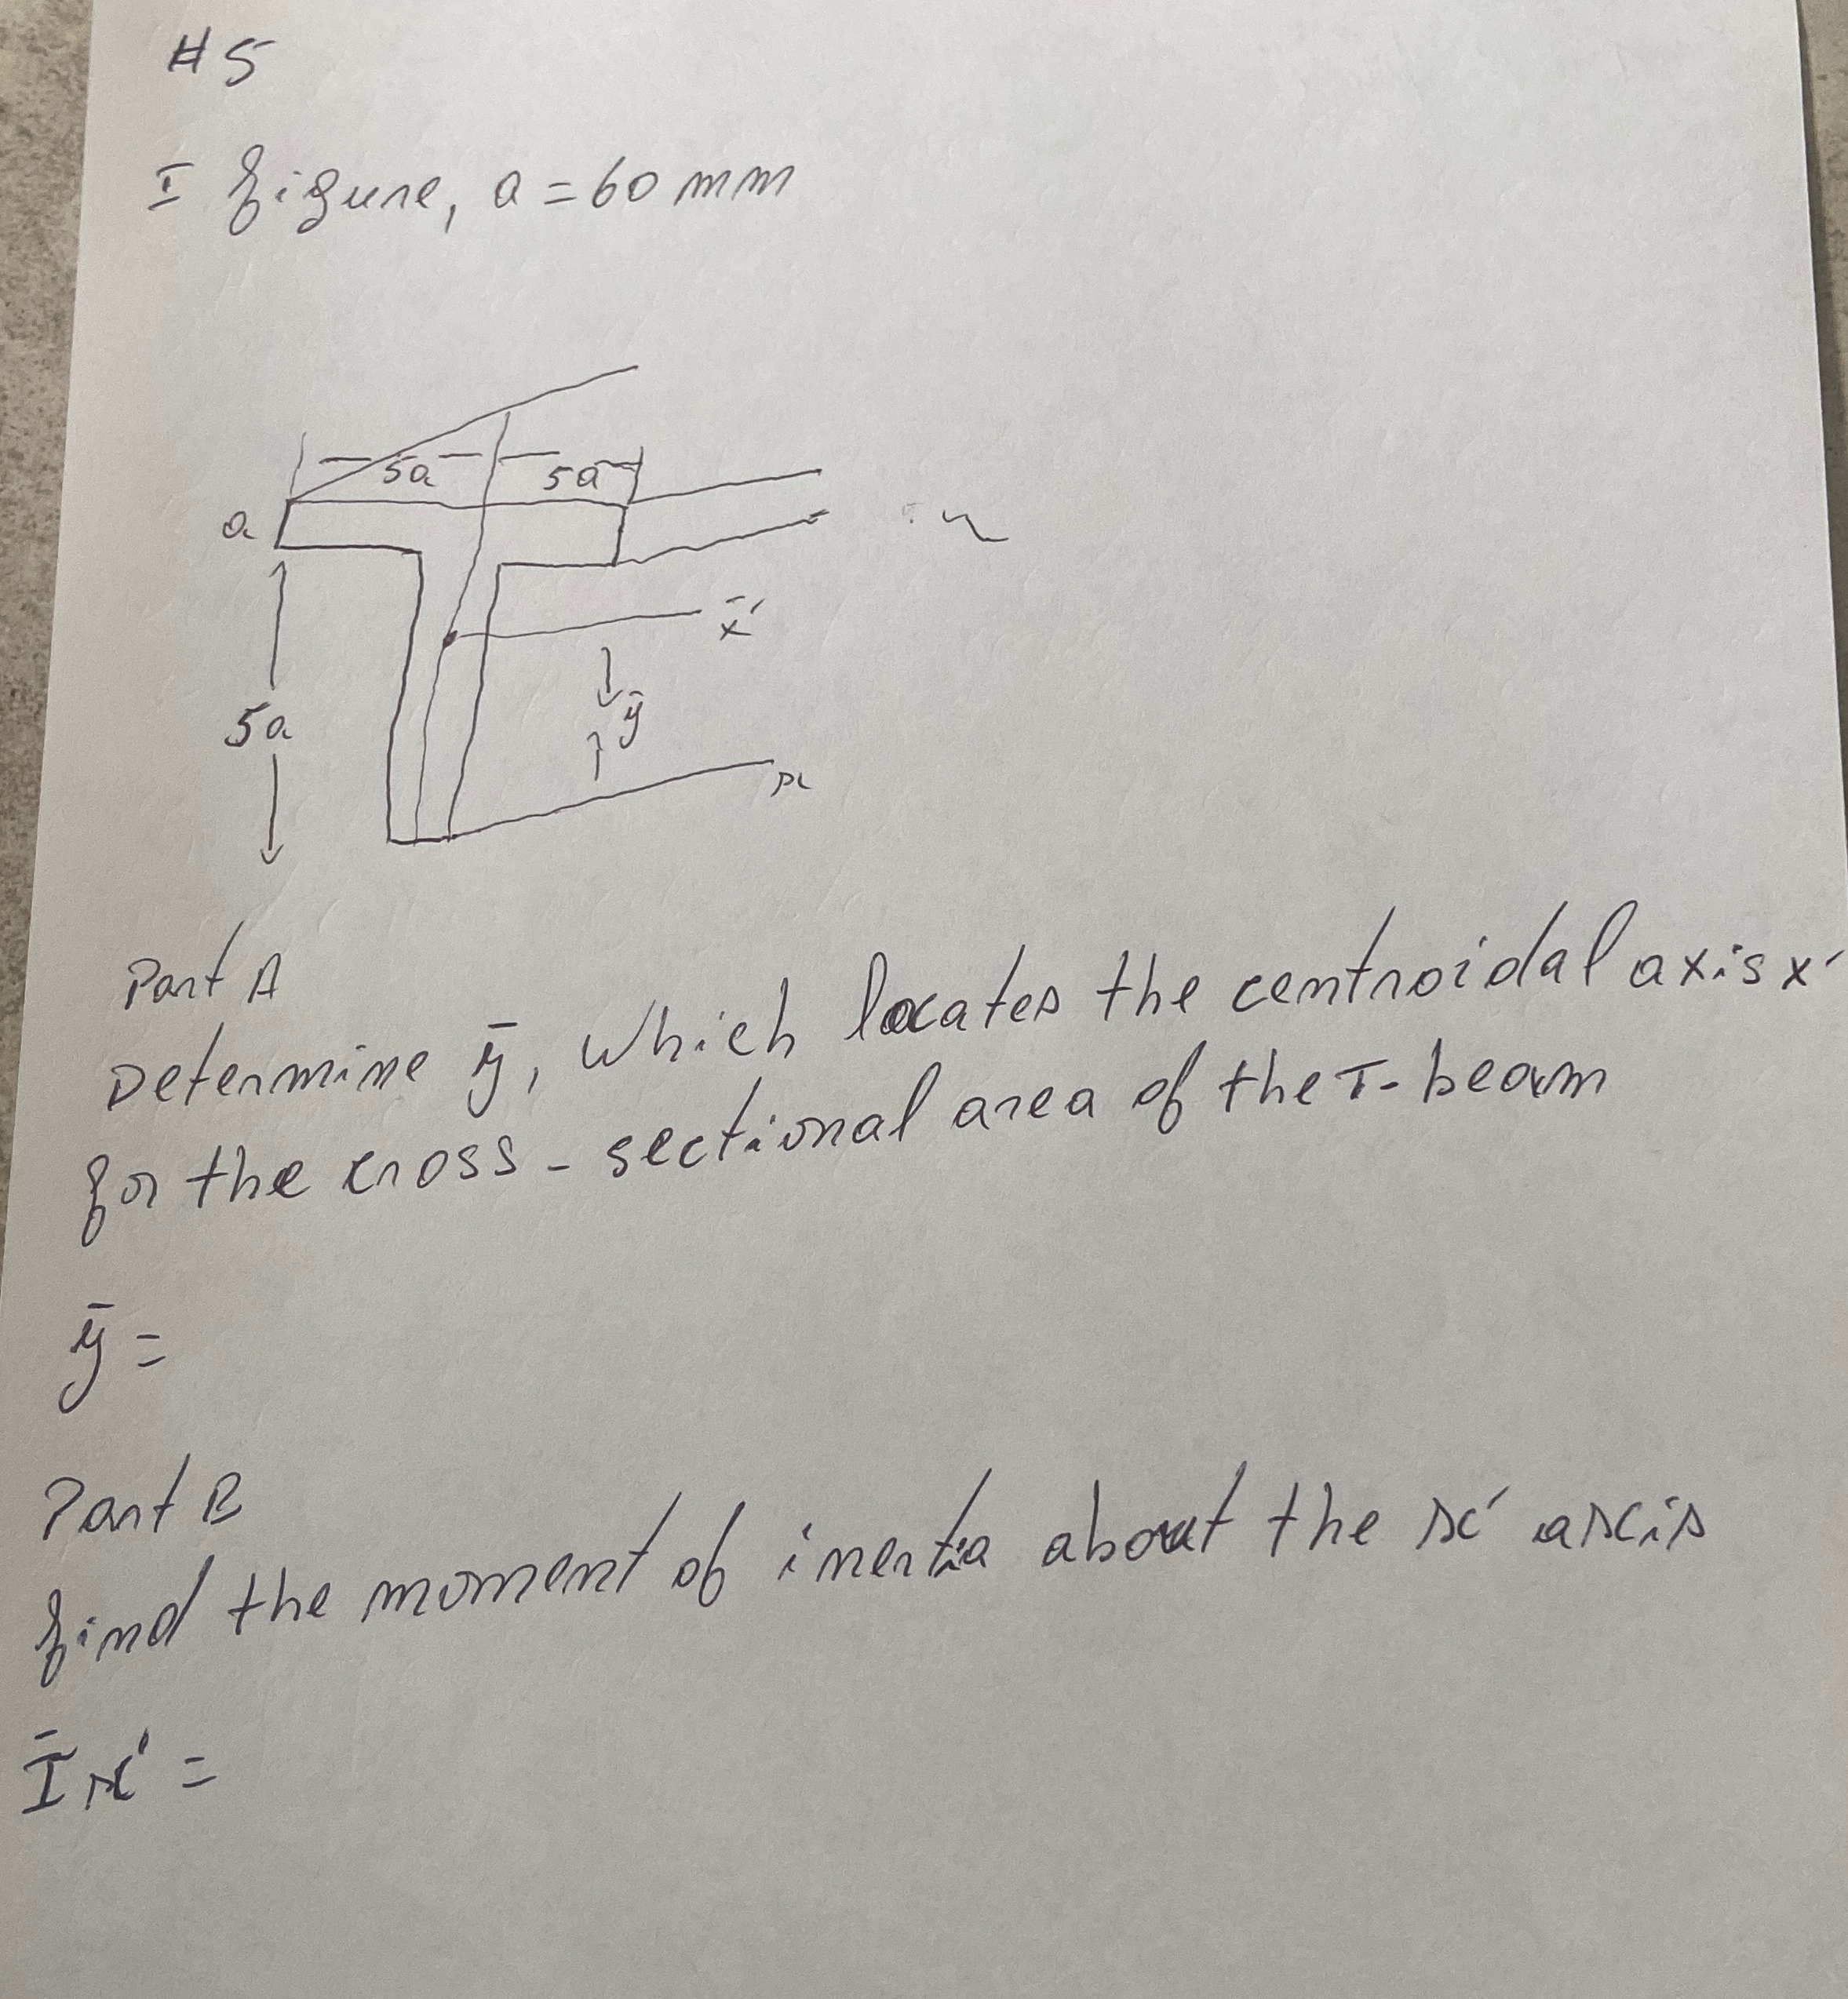 #5
I figure, a = 60 mm
5a 5a
a
x̄'
5a
ȳ
x
Part A
Determine ȳ, which locates the centroidal axis x'
for the cross - sectional area of the T- beam
ȳ =
Part B
find the moment of inertia about the x' axis
Ī x' =